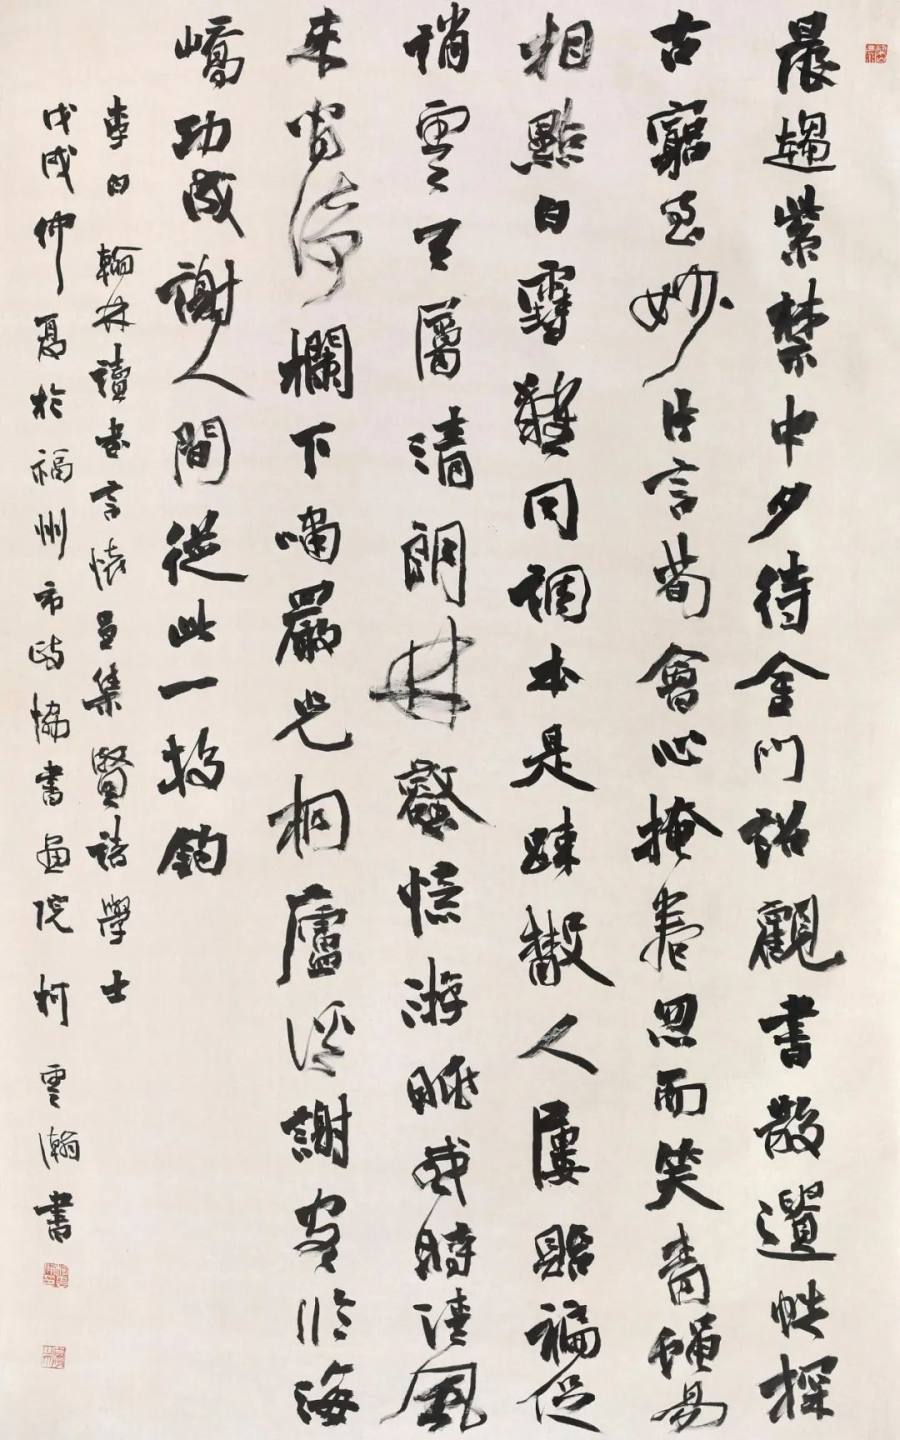 晨趨紫禁中夕待金門詔觀書散遺帙探
古窮至妙片言苟會心掩卷忽而笑青蠅易
相點白雪難同調本是疎散人屢貽褊促
誚雲天屬清朗林壑憶游眺或時清風
來閒倚欄下嘯嚴光桐廬溪謝客臨海
嶠功成謝人間從此一投釣
李白翰林讀書言懷呈集賢諸學士
戊戌仲夏於福州市政協書畫院柯雲瀚書